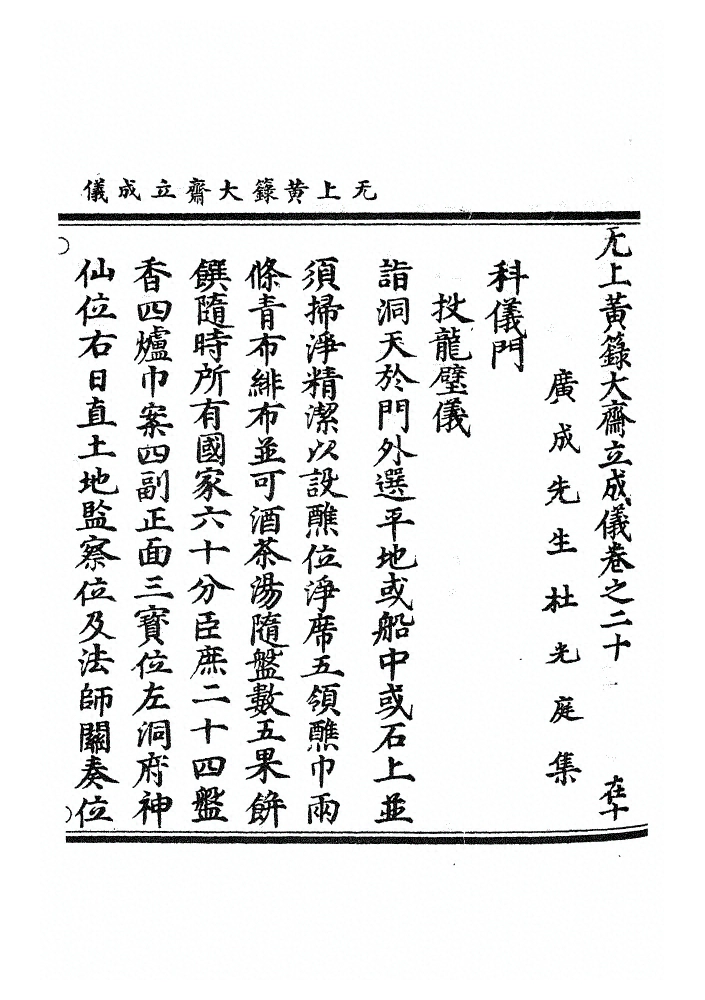 无上黄籙大齋立成儀
无上黄籙大齋立成儀卷之二十一 在十
廣成先生杜光庭集
科儀門
投龍璧儀
詣洞天於門外選平地或船中或石上並
須掃淨精潔以設醮位淨席五領醮巾兩
條青布緋布並可酒茶湯隨盤數五果餅
饌隨時所有國家六十分臣庶二十四盤
香四爐巾案四副正面三寳位左洞府神
仙位右日直土地監察位及法師關奏位